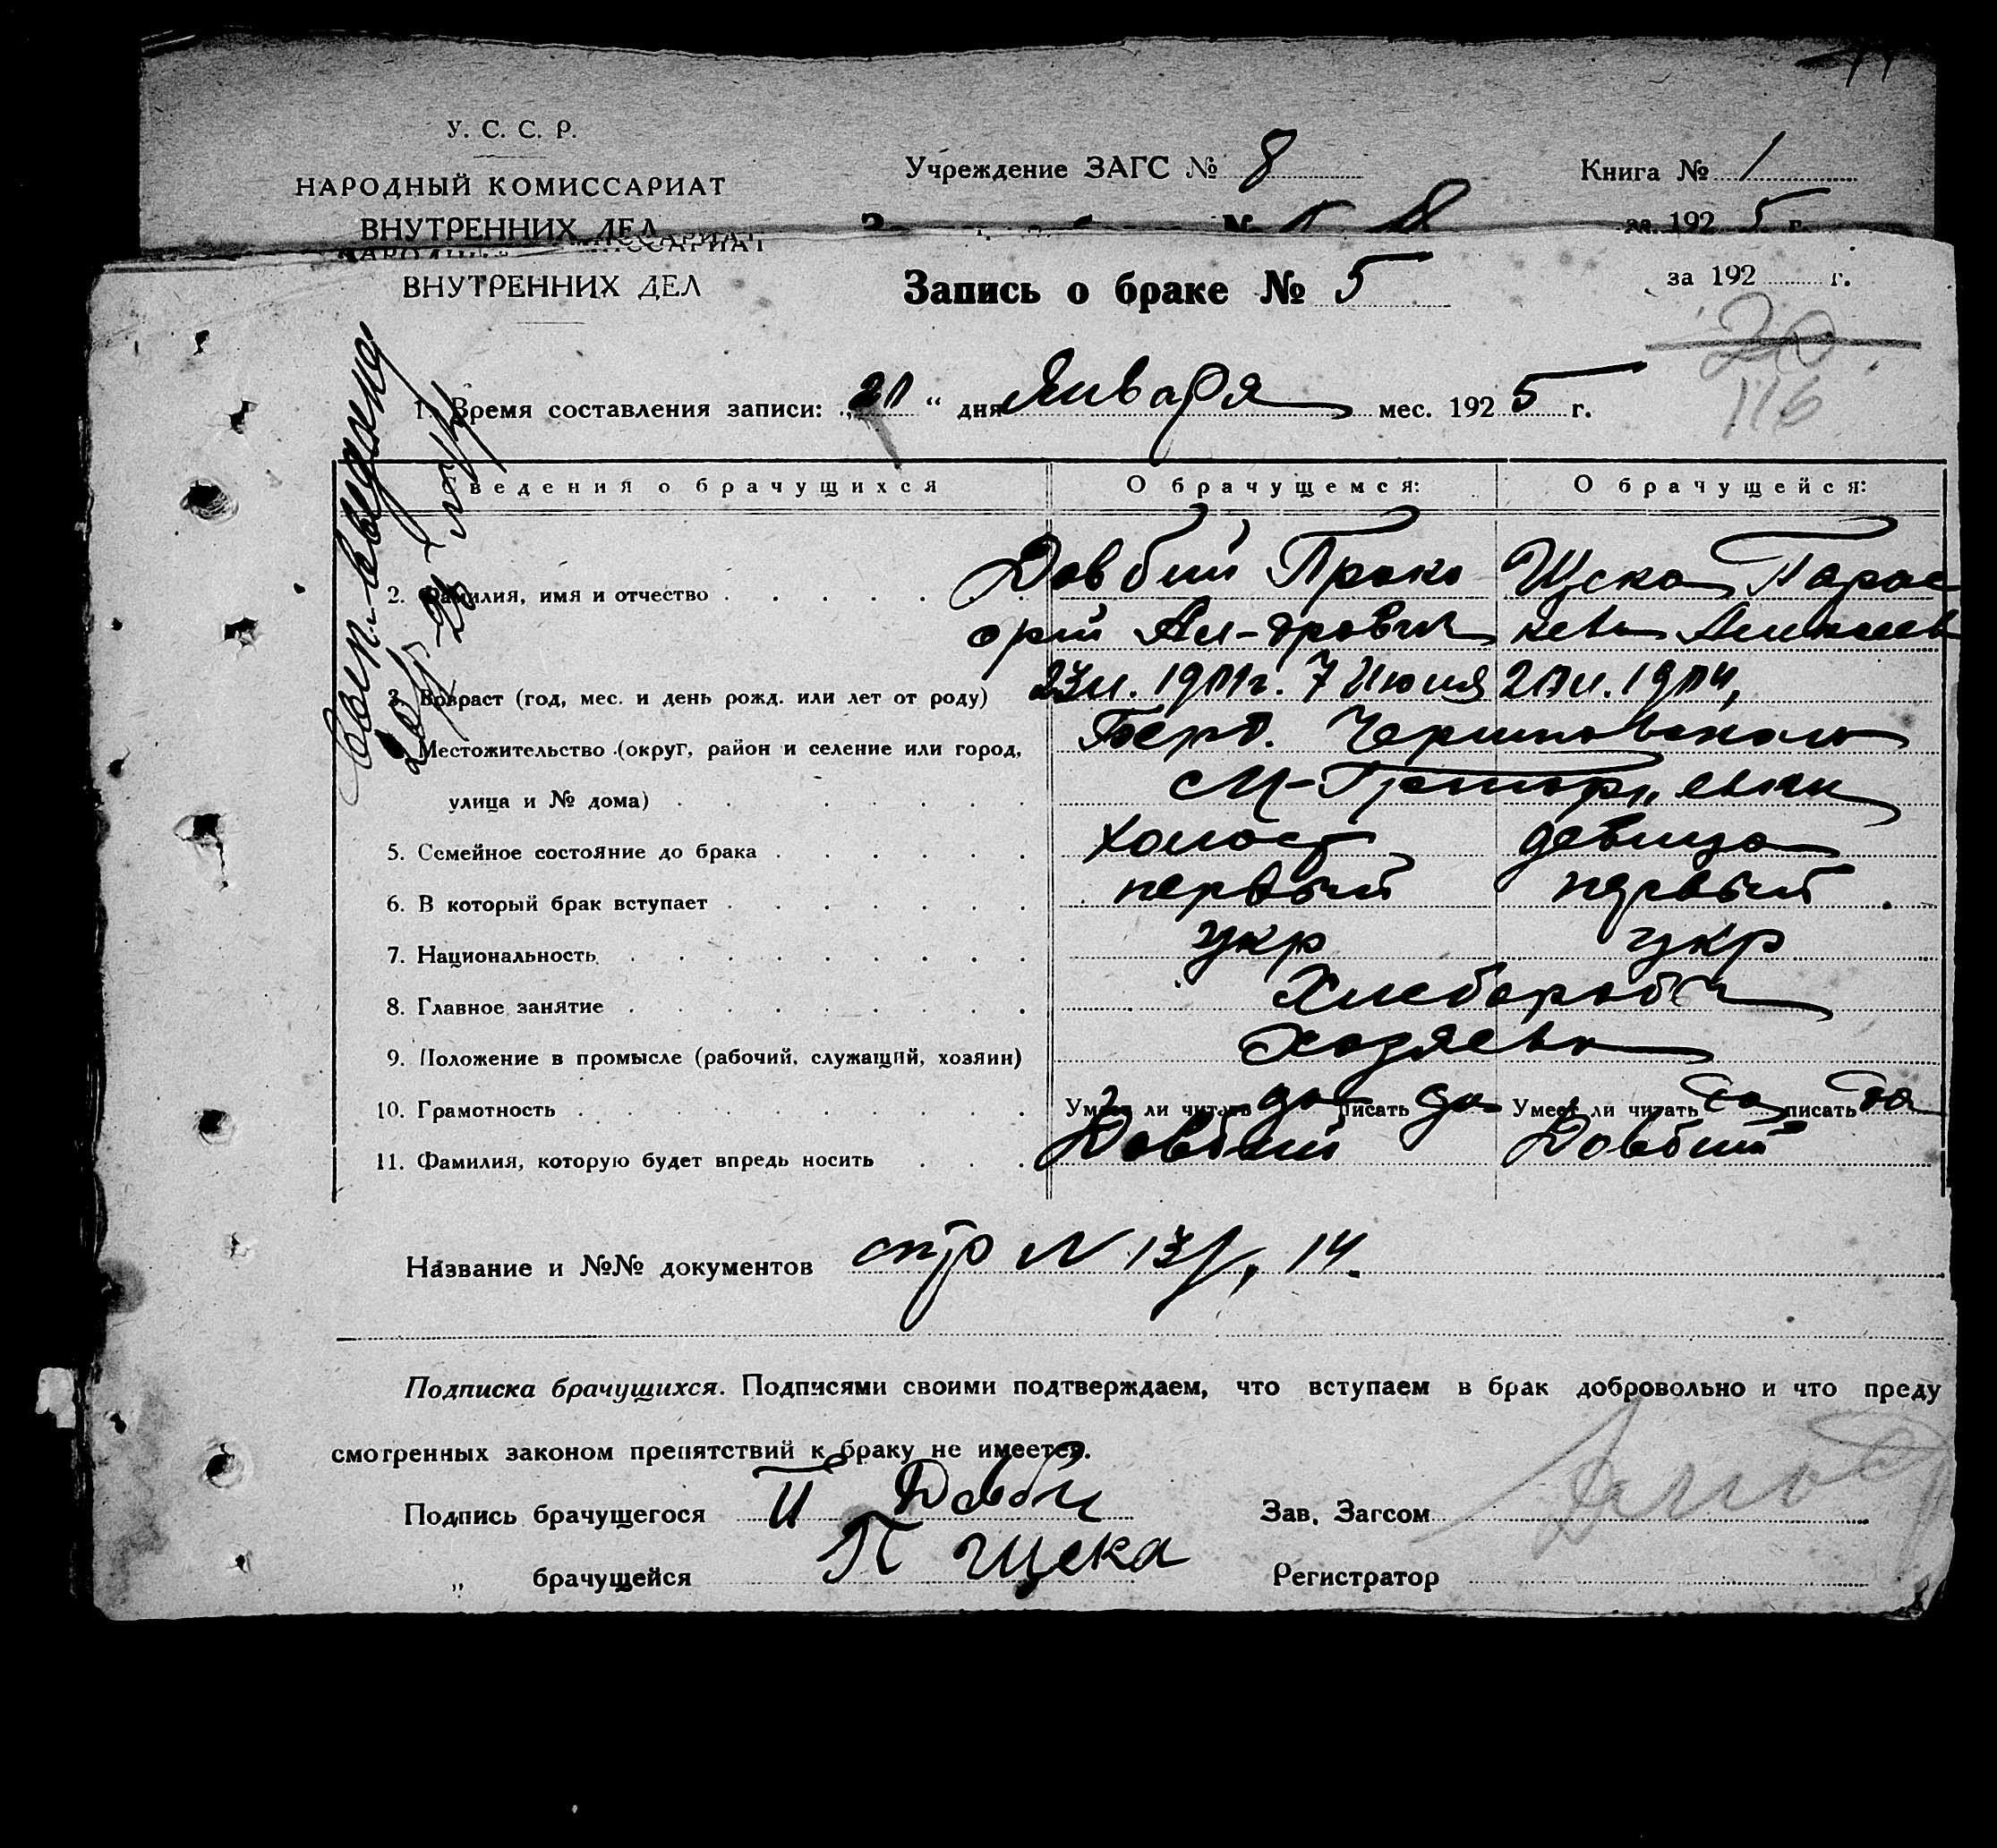 У. С. С. Р.
НАРОДНЫЙ КОМИССАРИАТ
ВНУТРЕННИХ ДЕЛ
Учреждение ЗАГС № 8
Книга № 1
за 192 5 г.
ВНУТРЕННИХ ДЕЛ
Запись о браке № 5
за 192 г.
20
116
1. Время составления записи: „20“ дня Января мес. 192 5 г.
Сведения о брачущихся О брачущемся: О брачущейся:
2. Фамилия, имя и отчество Довбий Проко Щека Парас
Ал-дрович кева Алексеев
3. Возраст (год, мес. и день рожд. или лет от роду) 23 л. 1901 г. 7 Июня 20 л. 1904,
Местожительство (округ, район и селение или город, Берд.
улица и № дома)
5. Семейное состояние до брака холост девица
6. В который брак вступает первый первый
7. Национальность укр укр
8. Главное занятие Хлебороб
9. Положение в промысле (рабочий, служащий, хозяин) Хозяева
10. Грамотность Умеет ли читать да писать да Умеет ли читать да писать да
11. Фамилия, которую будет впредь носить Довбий Довбий
Название и №№ документов спр N 13/, 14.
Подписка брачущихся. Подписями своими подтверждаем, что вступаем в брак добровольно и что преду
смотренных законом препятствий к браку не имеется.
Подпись брачущегося П Довбий Зав. Загсом
„ брачущейся П Щека Регистратор